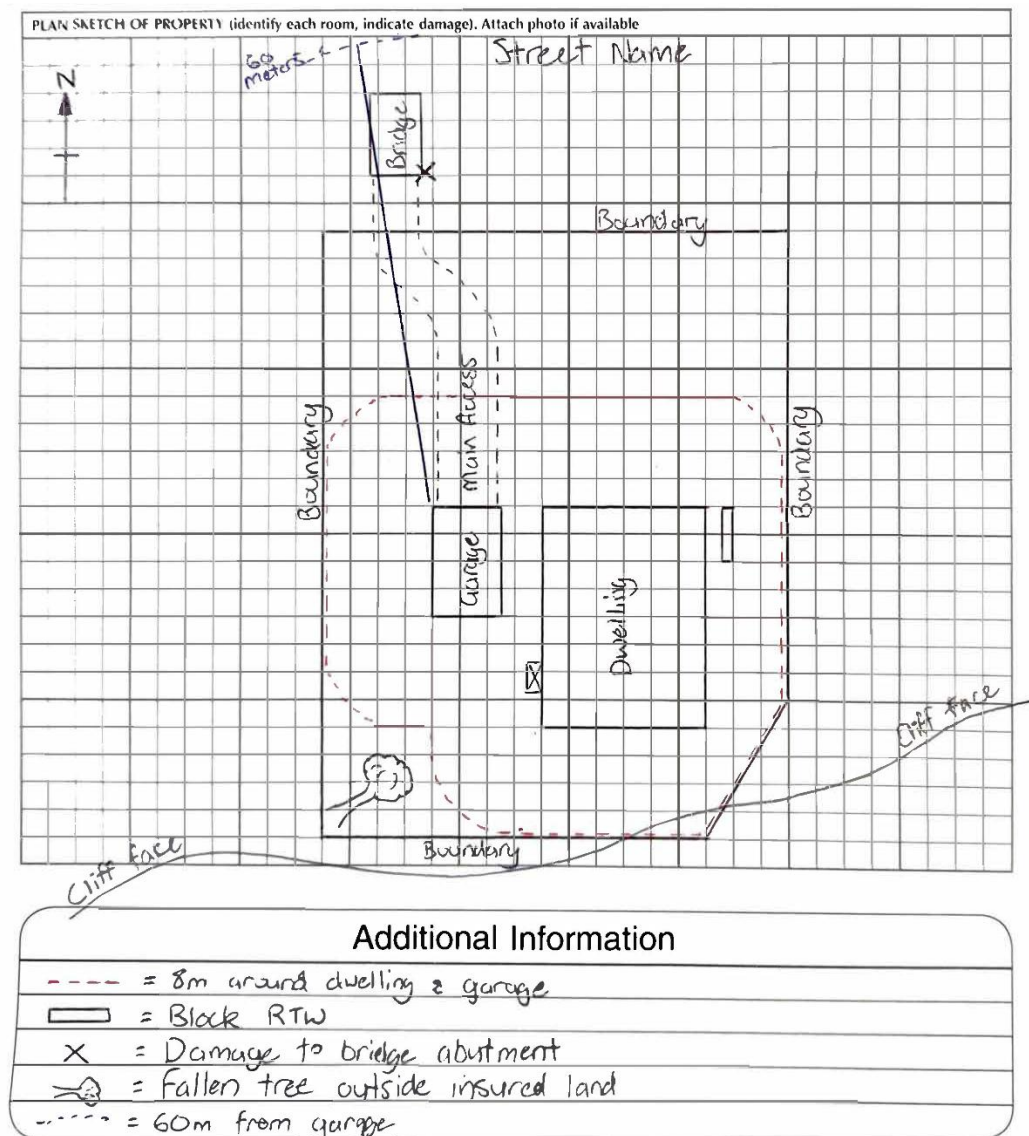 PLAN SKETCH OF PROPERTY (identify each room, indicate damage). Attach photo if available
Street Name
60
meters
N
Bridge
Boundary
Main Access
Boundary
Boundary
Garage
Dwelling
Cliff face
Boundary
Cliff face
Additional Information
= 8m around dwelling & garage
= Block RTW
X = Damage to bridge abutment
= Fallen tree outside insured land
= 60m from garage